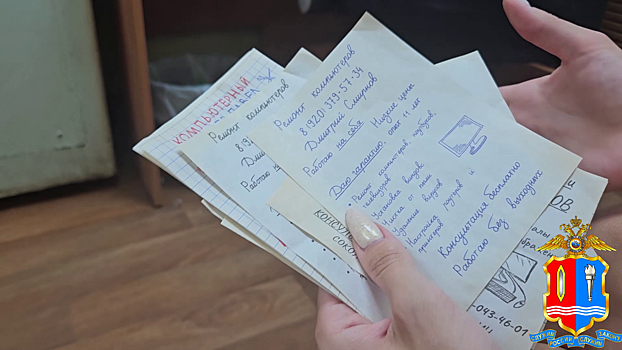 КОМПЬЮТЕРНЫЙ
Ремонт компьютеров
8(920)
Дмитрий
Работаю
Ремонт компьютеров
8(920)379-57-34
Дмитрий Смирнов
Работаю на себя. Низкие цены
Даю гарантию. опыт 11 лет
• Ремонт компьютеров, ноутбуков,
телевизоров
Установка виндов
Чистка от пыли
Удаление вирусов
Настройка роутеров и
принтеров
Консультация бесплатно
Работаю без выходных
КОНСУ
СОКО
ОВ
-043-46-01
СЛУЖИМ РОССИИ СЛУЖИМ ЗАКОНУ